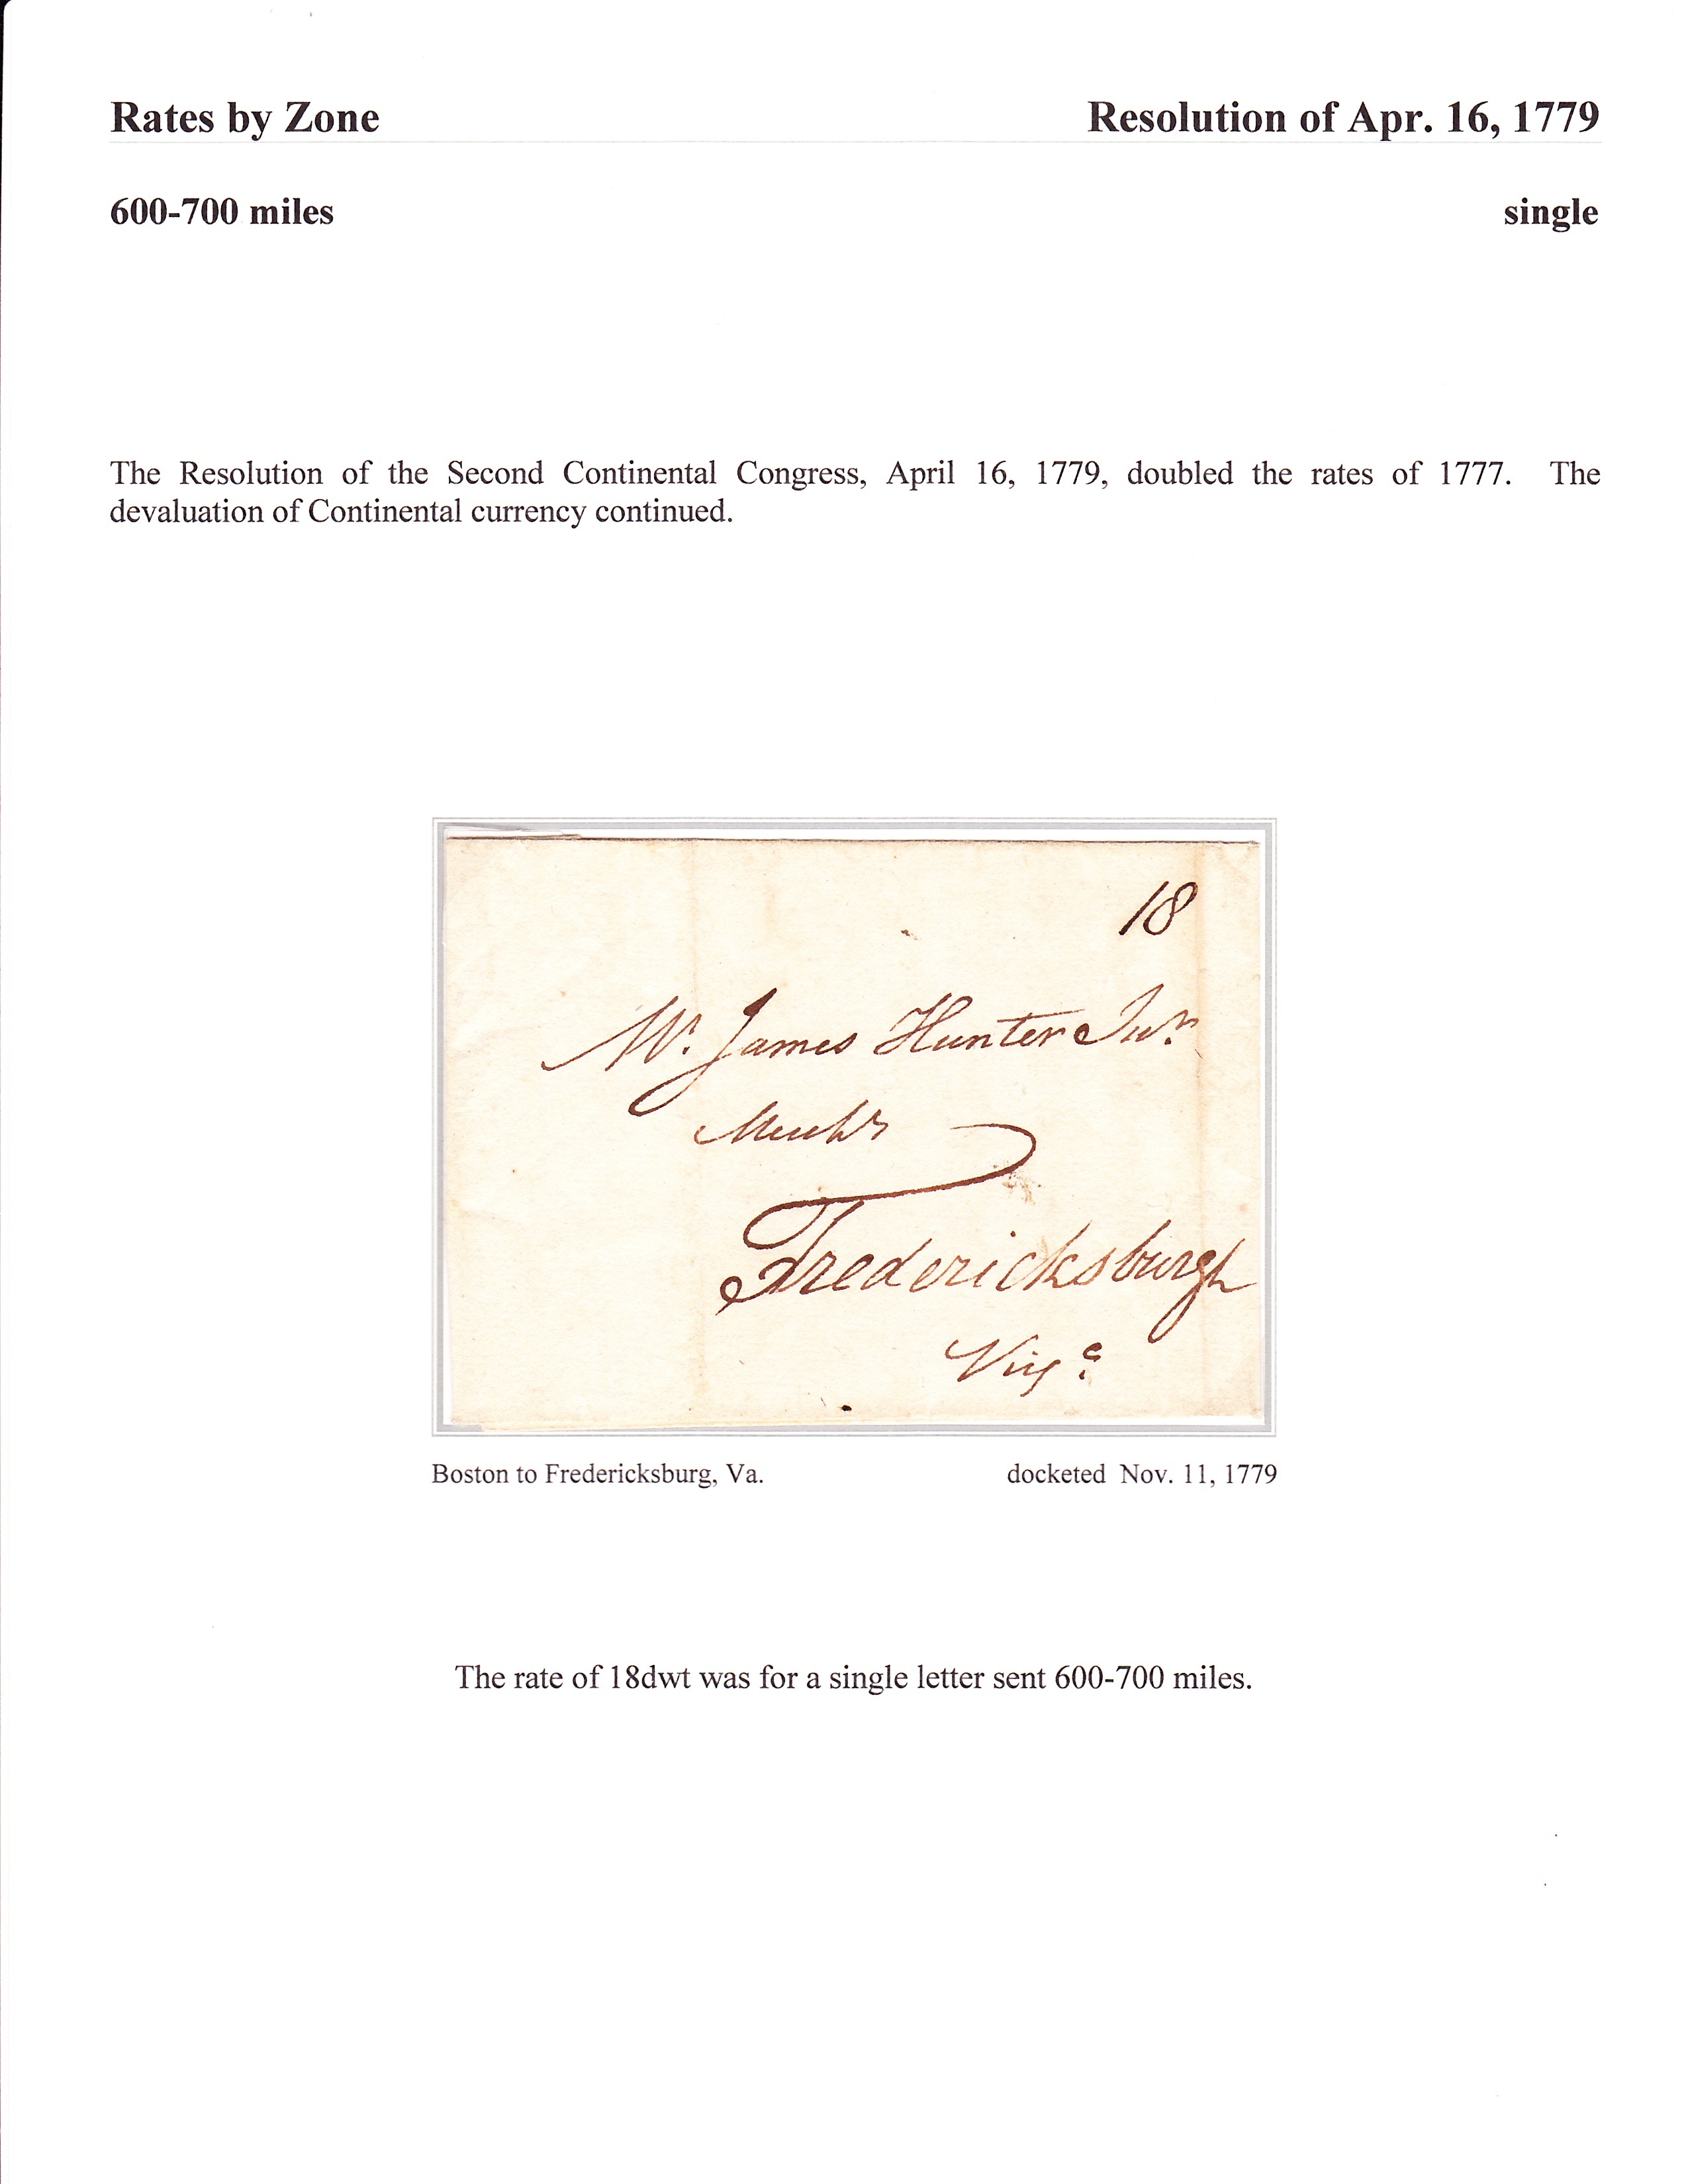 Rates by Zone Resolution of Apr. 16, 1779
600-700 miles single
The Resolution of the Second Continental Congress, April 16, 1779, doubled the rates of 1777. The
devaluation of Continental currency continued.
18
Mr. James Hunter Junr
Mercht
Fredericksburgh
Virga
Boston to Fredericksburg, Va. docketed Nov. 11, 1779
The rate of 18dwt was for a single letter sent 600-700 miles.